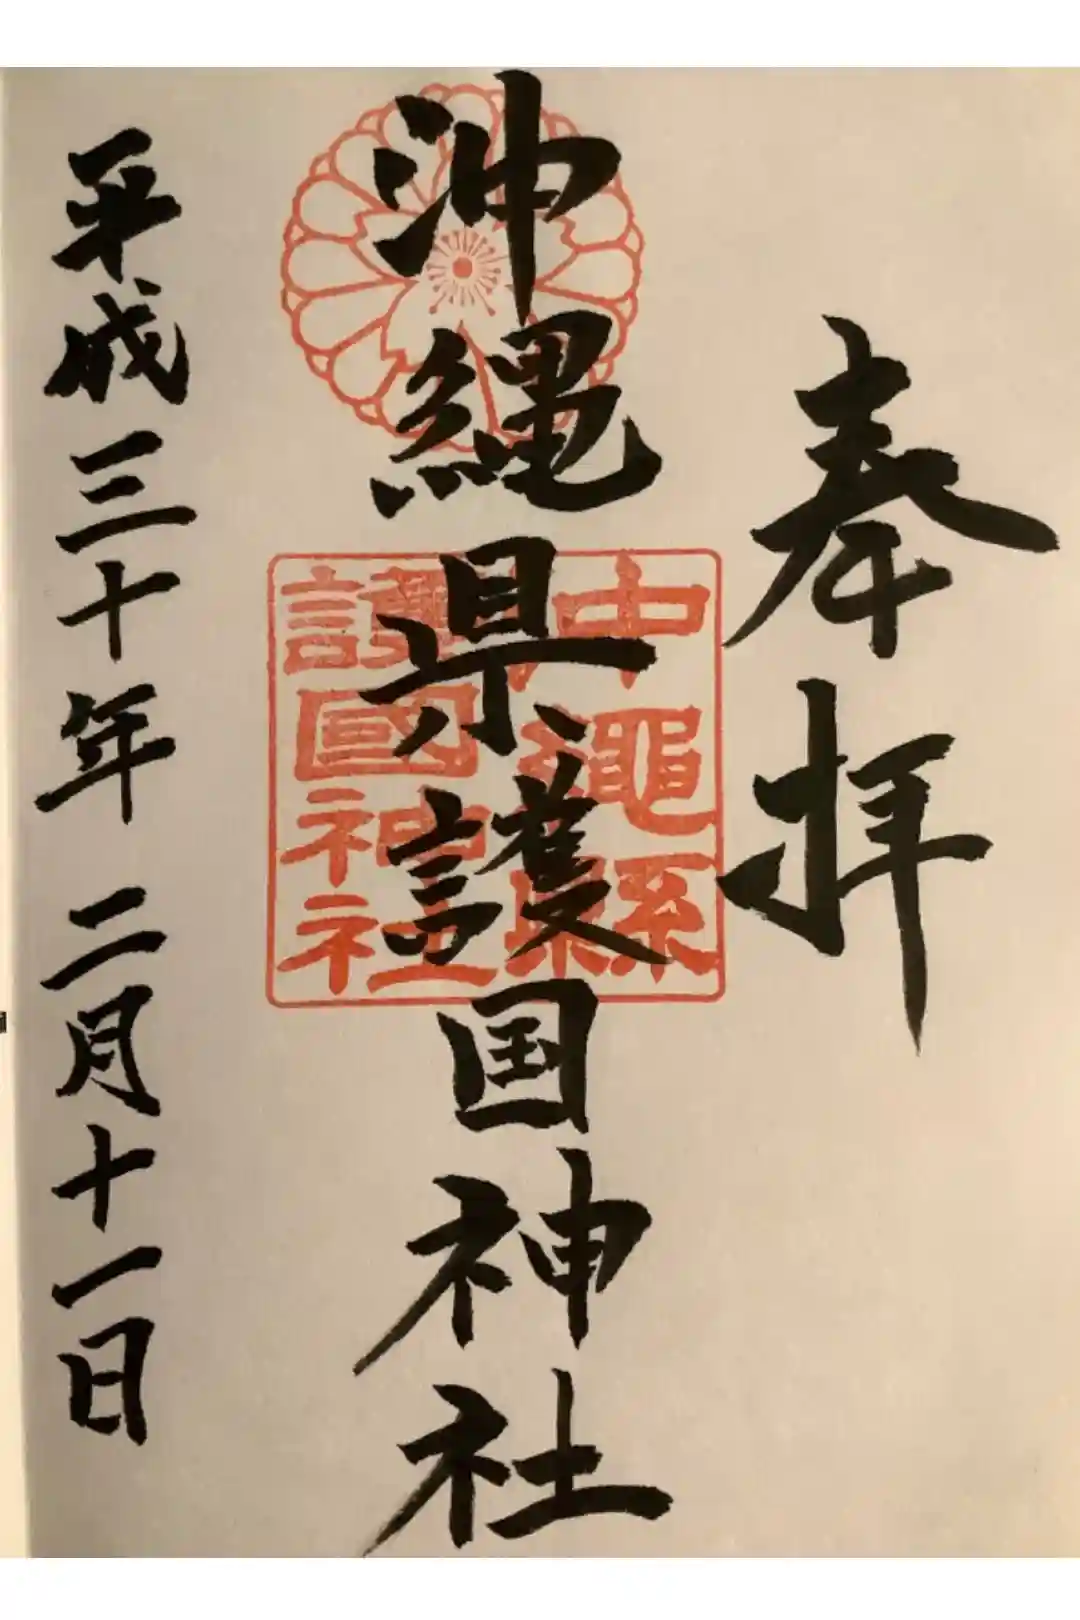 奉拝
沖縄県護国神社
沖繩縣
護國神社
平成三十年 二月十一日